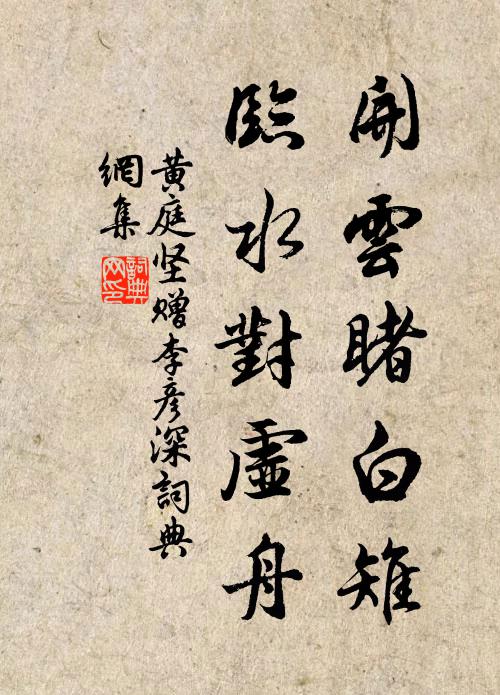 開雲睹白雉
臨水對虛舟
黄庭坚赠李彦深詞典
網集
詞典
网印